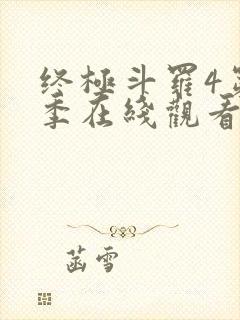 终極斗羅4第
季在綫觀看
菡雪